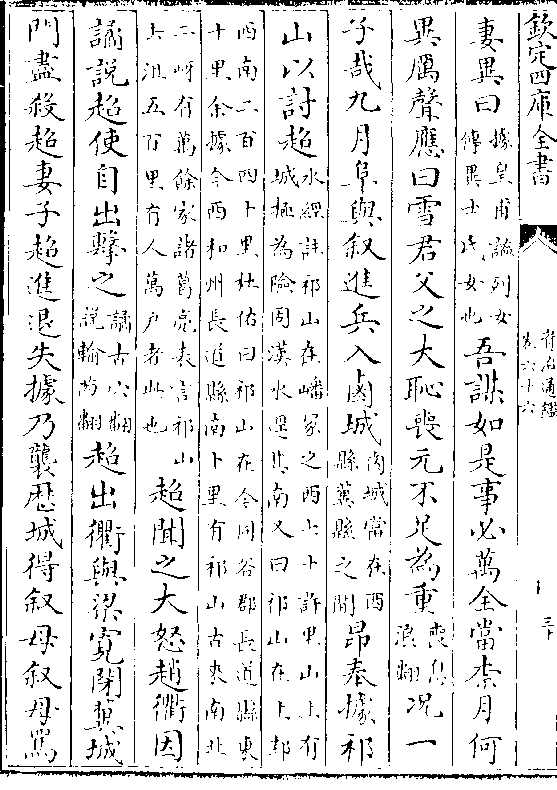 欽定四庫全書
資治通鑑
卷六十六
三十
妻異曰
據皇甫謐列女
傳異士氏女也
吾謀如是事必萬全當柰月何
異厲聲應曰雪君父之大恥喪元不足為重
喪息
浪翻
况一
子哉九月阜與叙進兵入鹵城
鹵城當在西
縣冀縣之間
昂奉據祁
山以討超
水經註祁山在嶓冢之西七十許里山上有
城極為險固漢水逕其南又曰祁山在上邽
西南二百四十里杜佑曰祁山在今同谷郡長道縣東
十里余據今西和州長道縣南十里有祁山古東南北
二岈有萬餘家諸葛亮表言祁山
去沮五百里有人萬户者此也
超聞之大怒趙衢因
譎說超使自出擊之
譎古穴翻
說輸芮翻
超出衢與梁寛閉冀城
門盡殺超妻子超進退失據乃襲歴城得叙母叙母罵